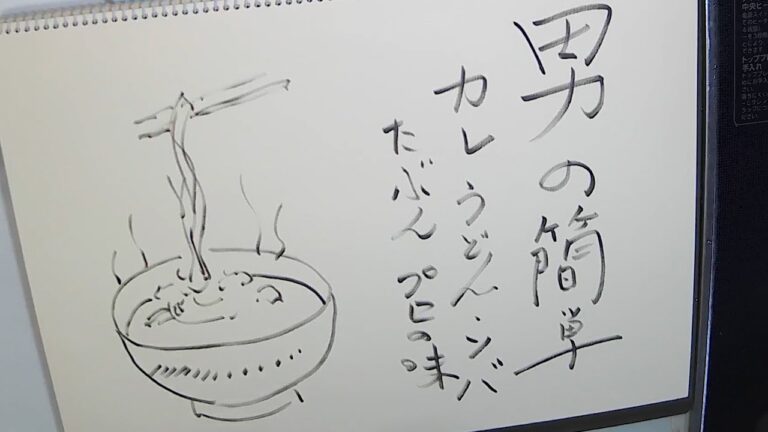 男の簡単
カレうどん・ソバ
たぶん プロの味
中央ヒー
トッププレ
手入れ